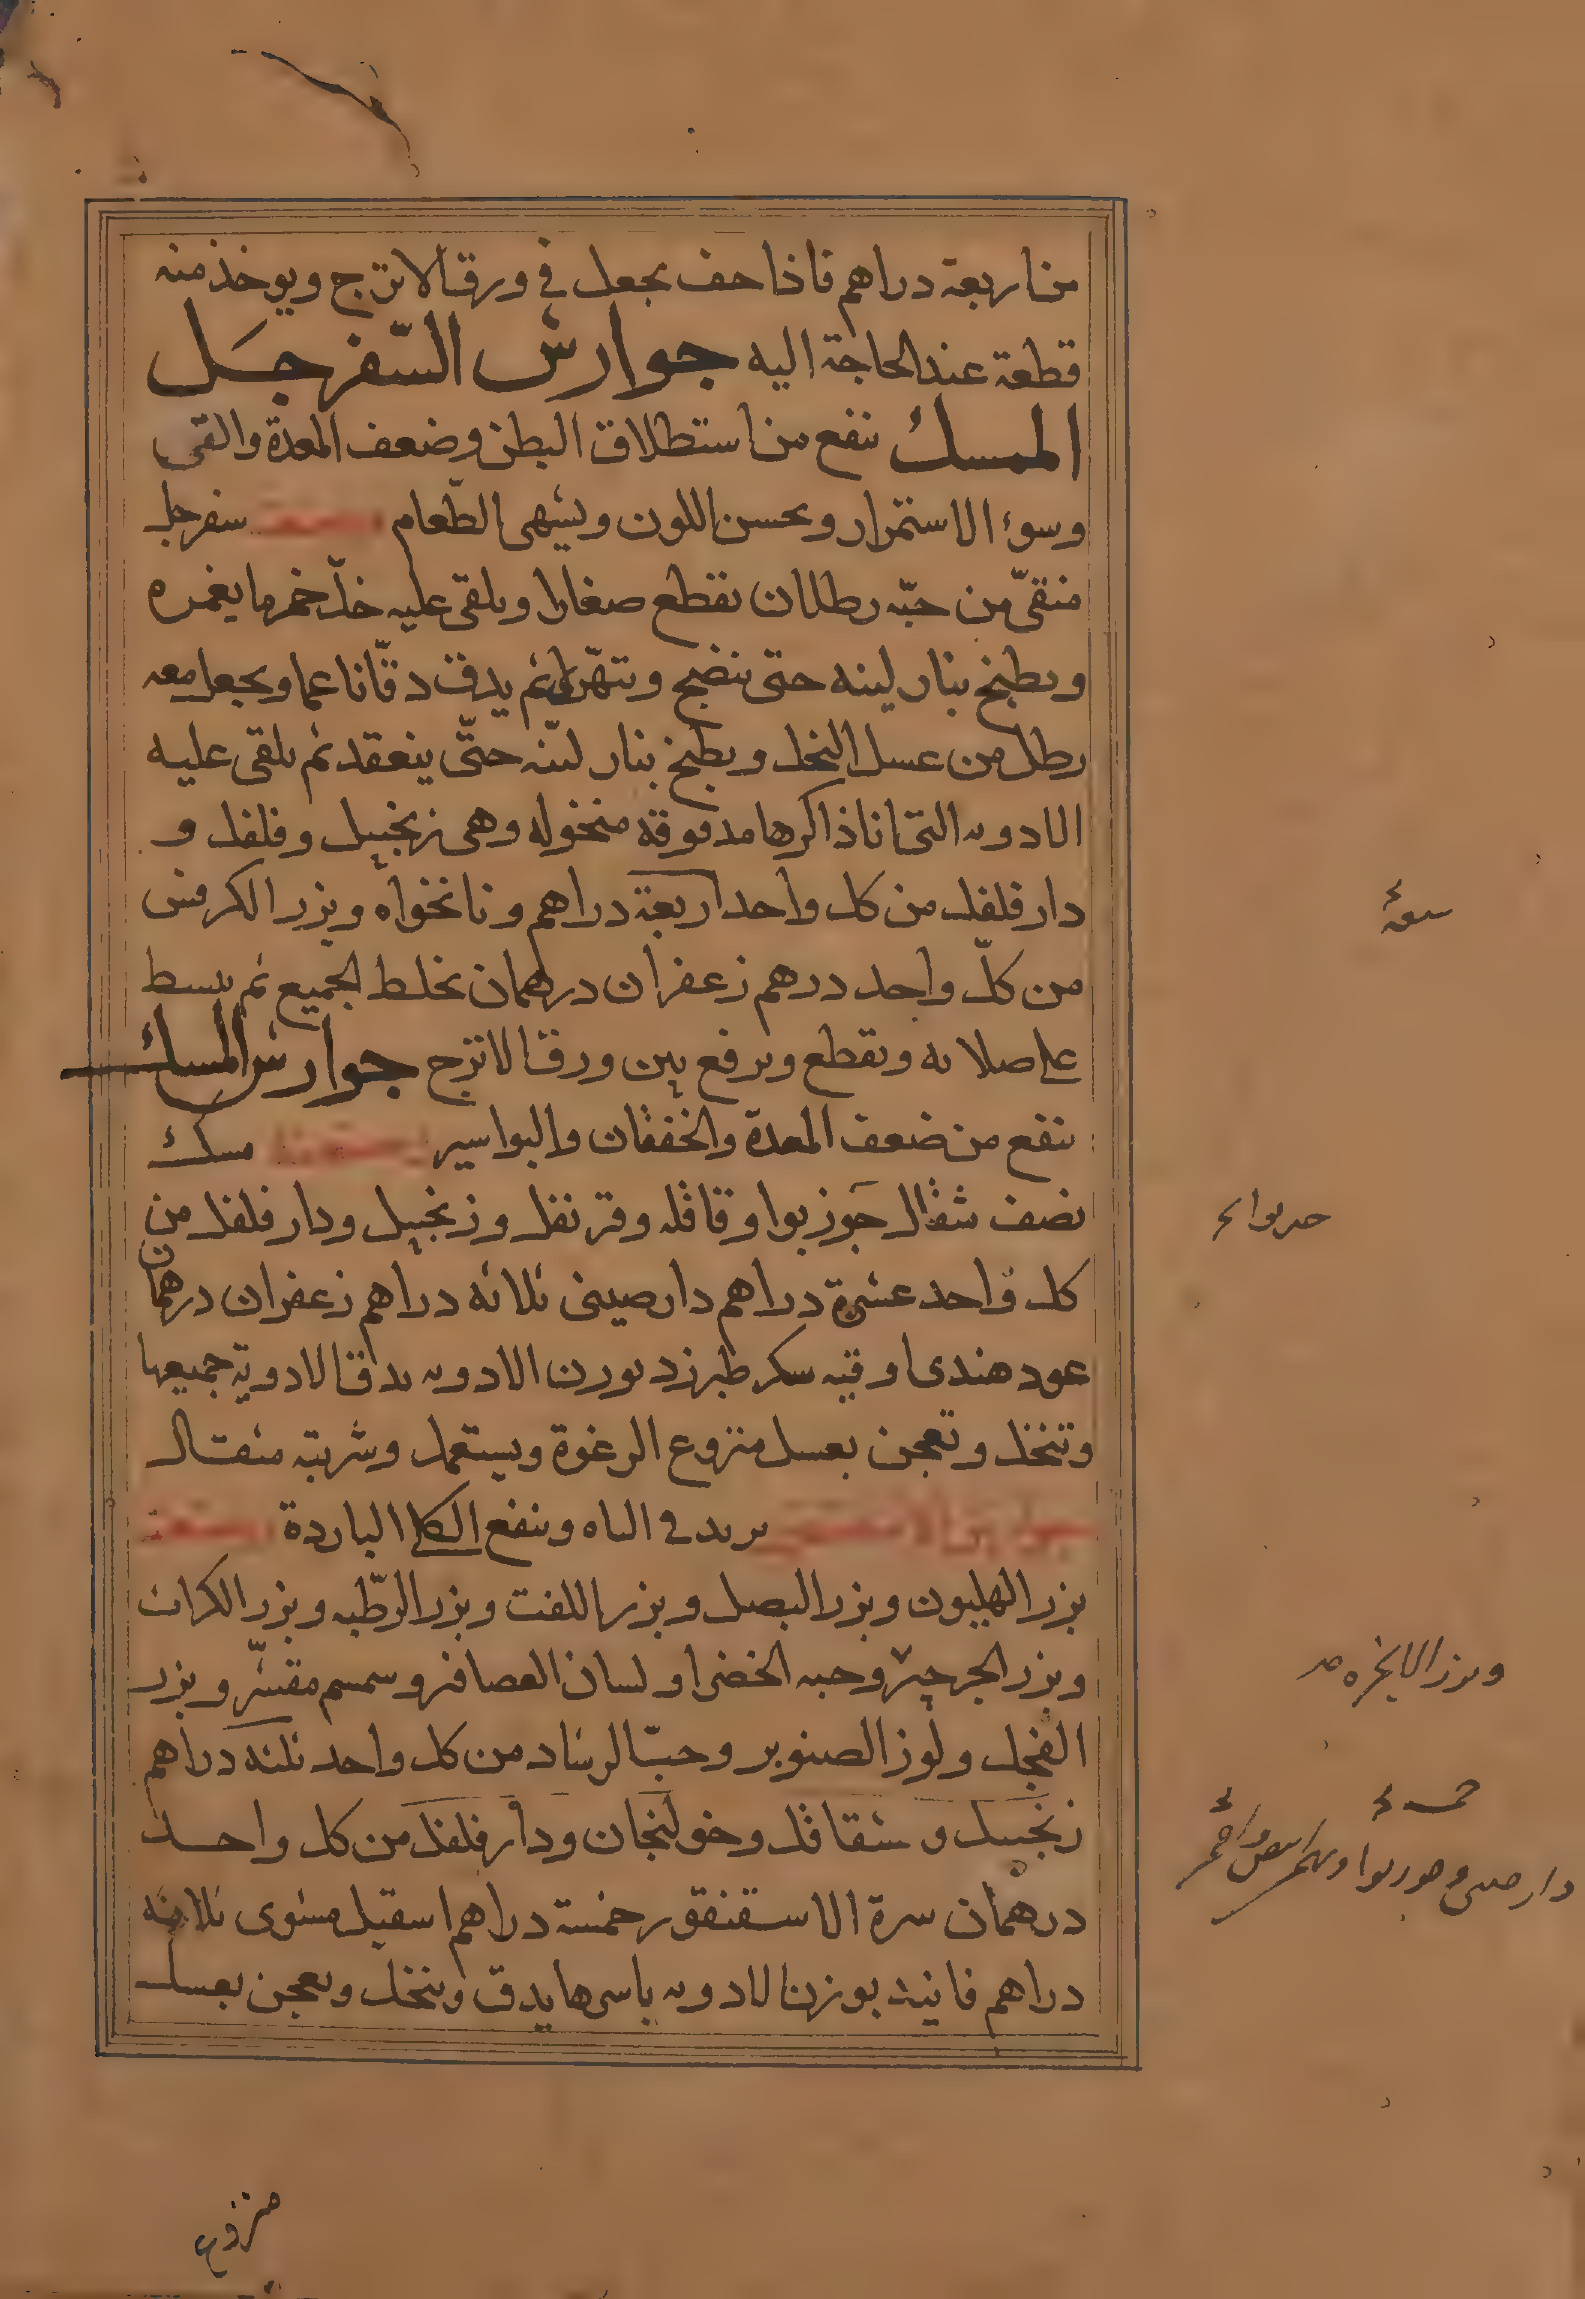 من اربعة دراهم فاذا جف يجعل في ورق الاترج ويوخذ منه
قطعة عند الحاجة اليه جوارش السّفرجَل
الممسك ينفع من استطلاق البطن وضعف المعدة والقى
وسوء الاستمرار ويحسن اللون ويشهى الطّعام صفته سفرجل
منقّى من حبّه رطلان يقطع صغارا ويلقى عليه خلّ خمر ما يغمره
ويطبخ بنار لينه حتى ينضج ويتهرّى ثم يدق دقّا ناعما ويجعل معه
رطل من عسل النحل ويطبخ بنار لينّه حتّى ينعقد ثم يلقى عليه
الادويه التى انا ذاكرها مدقوقه منخوله وهى زنجبيل وفلفل و
دارفلفل من كل واحد اربعة دراهم ونانخواه وبزر الكرفس
من كلّ واحد درهم زعفران درهمان يخلط الجميع ثم يبسط
على صلايه ويقطع ويرفع بين ورق الاترج جوارش المسك
ينفع من ضعف المعدة والخفقان والبواسير صفته مسك
نصف مثقال جَوزبوا وقاقله وقرنفل وزنجبيل ودارفلفل من
كل واحد عشرة دراهم دارصينى ثلاثه دراهم زعفران درهمان
عود هندى اوقيه سكر طبرزد بوزن الادويه يدق الادوية جميعها
وتنخل وتعجن بعسل منزوع الرغوة ويستعمل وشربته مثقال
يزيد فى الباه وينفع الكلا الباردة صفته
بزر الهليون وبزر البصل وبزر اللفت وبزر الرّطبه وبزر الكراث
وبزر الجرجير وحبه الخضرا ولسان العصافر وسمسم مقشّر وبزر
الفجل ولوز الصنوبر وحبّ الرشاد من كل واحد ثلثه دراهم
زنجبيل و شقاقل وخولنجان ودارفلفل من كل واحد
درهمان سرة الاسقنقور خمسة دراهم اسقيل مشوى ثلاثه
دراهم فانيد بوزن الادويه باسرها يدق وينخل ويعجن بعسل
وبزر الانجره
منزوع